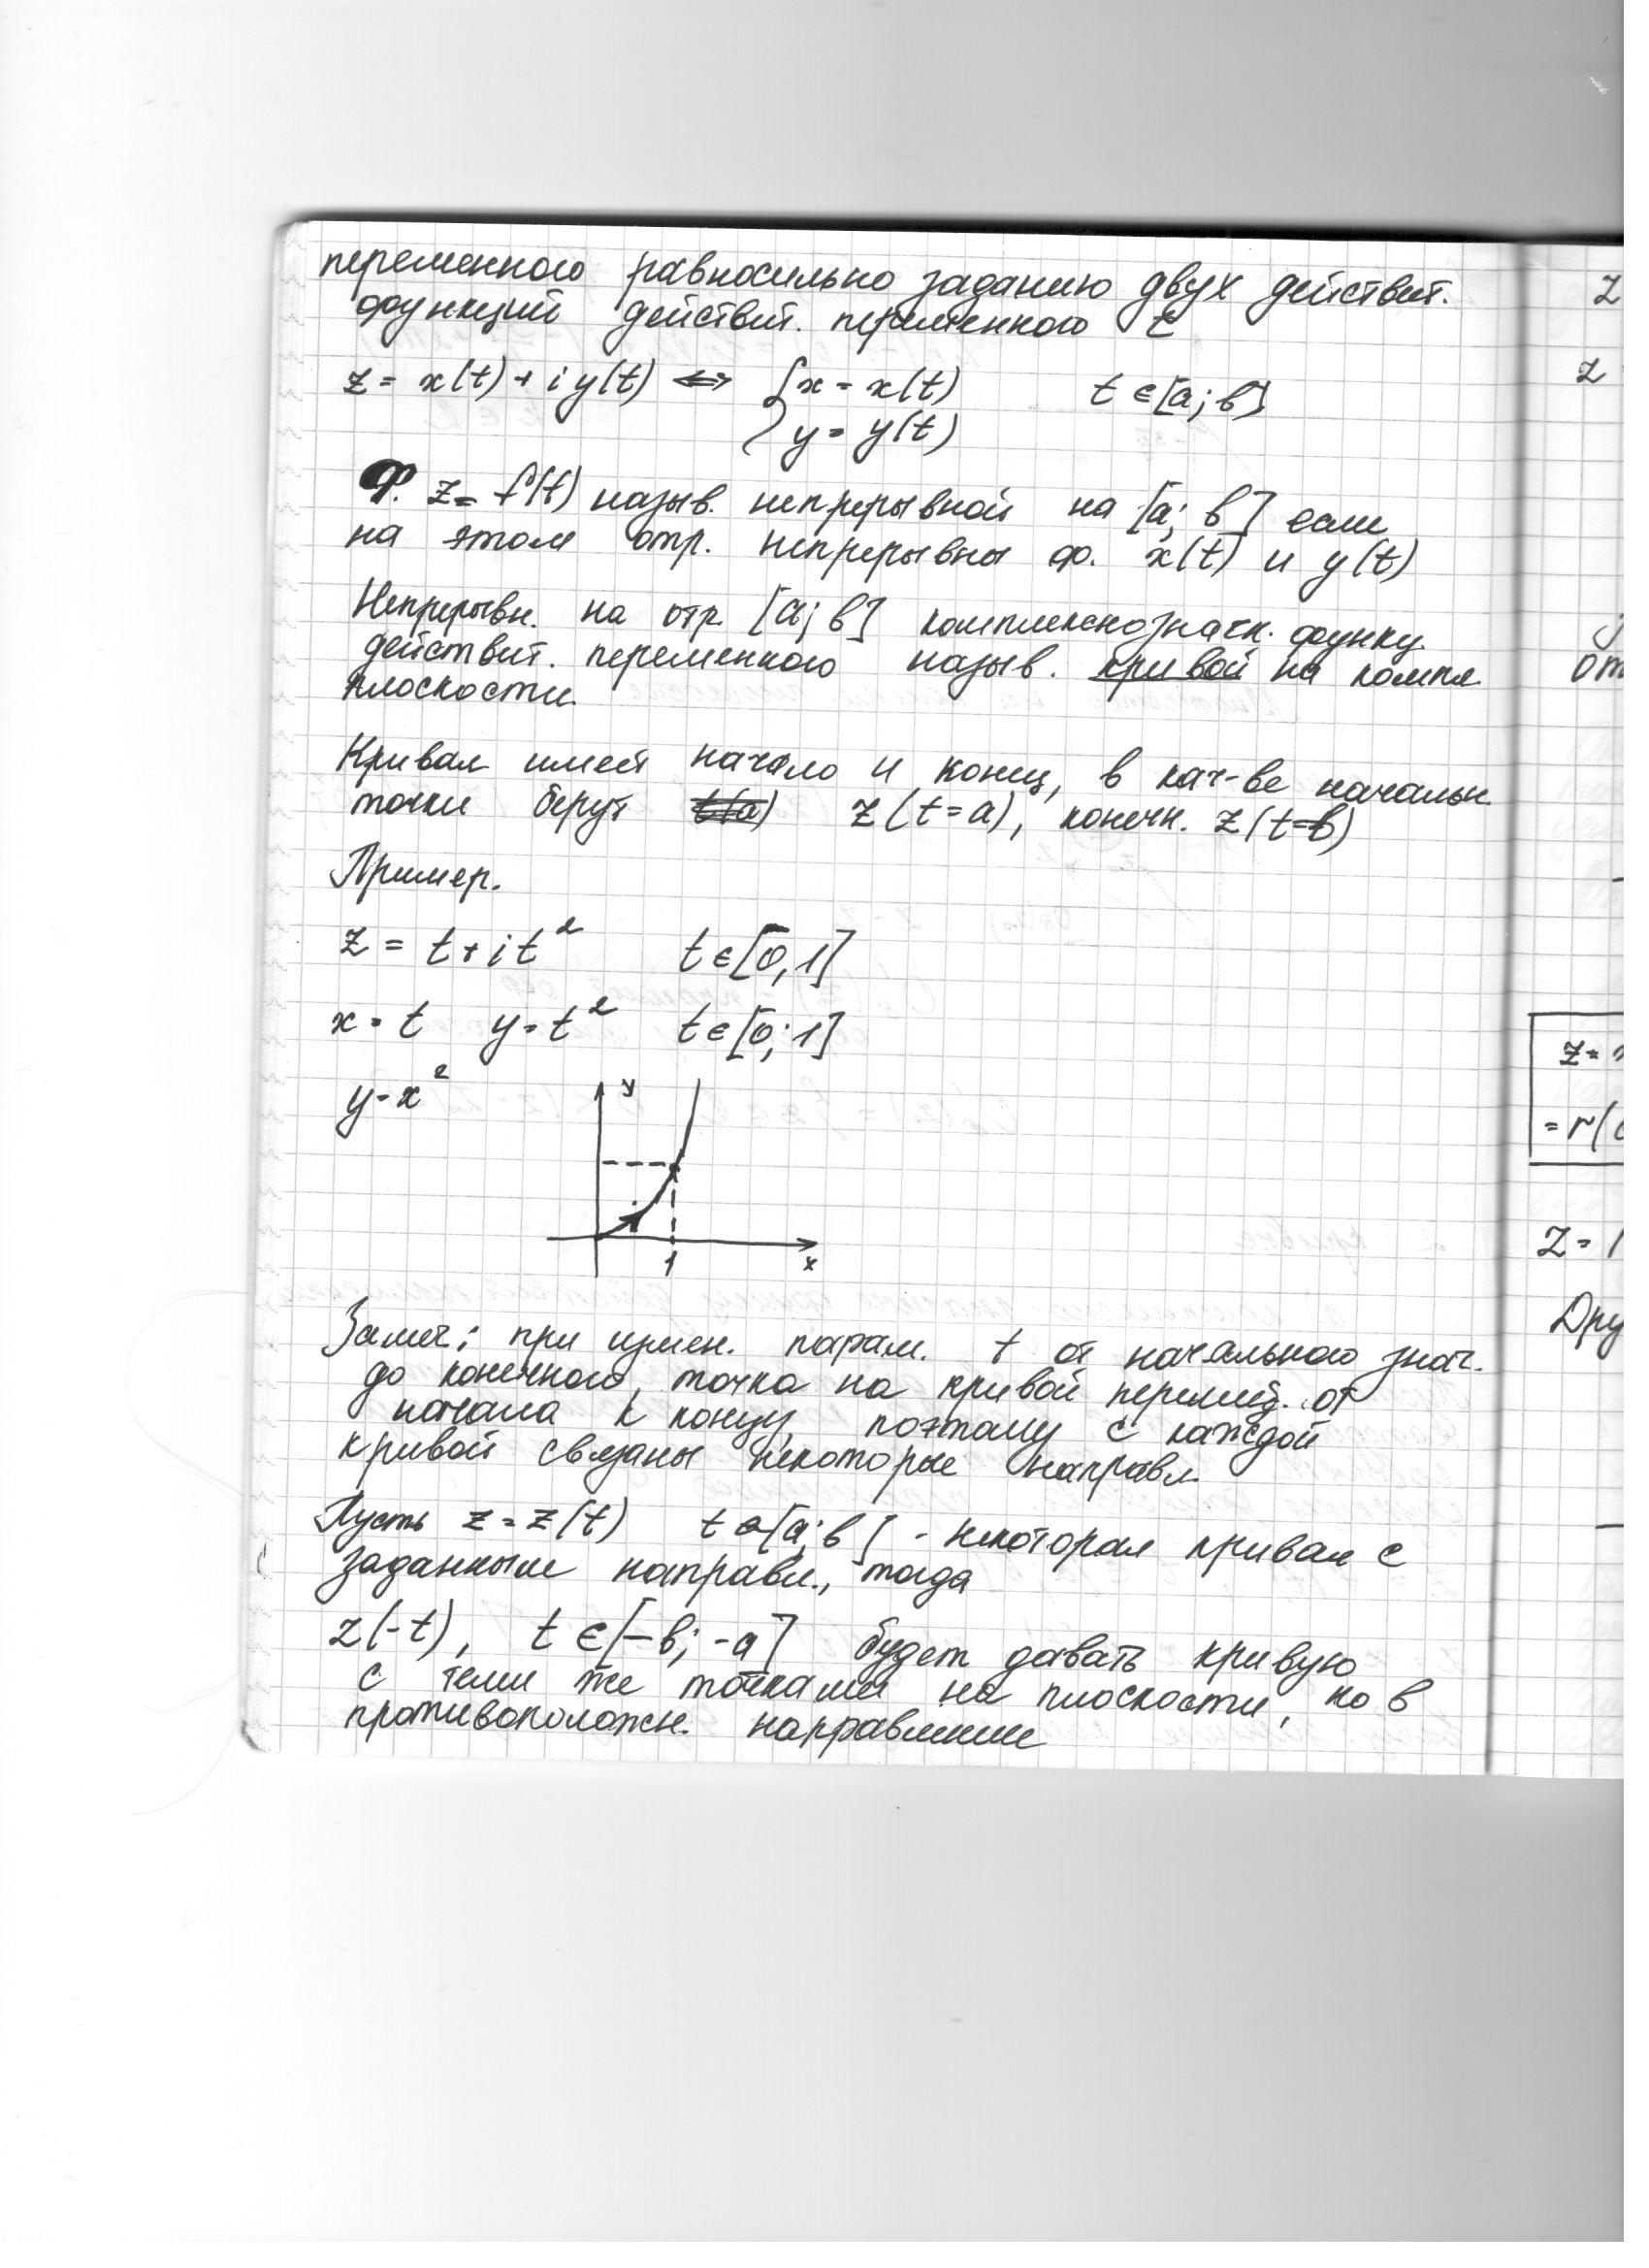 переменного равносильно заданию двух действит.
функций действит. переменного t
z = x(t) + i y(t) <=> { x = x(t)   t ∈ [a; b]
y = y(t)
Ф. z = f(t) назыв. непрерывной на [a; b] если
на этом отр. непрерывны ф. x(t) и y(t)
Непрерывн. на отр. [a; b] комплекснозначн. функц.
действит. переменного назыв. кривой на компл.
плоскости.
Кривая имеет начало и конец, в кач-ве начальн.
точки берут z(t=a), конечн. z(t=b)
Пример.
z = t + it²   t ∈ [0, 1]
x = t   y = t²   t ∈ [0; 1]
y = x²
y
1
x
Замеч: при измен. парам. t от начального знач.
до конечного, точка на кривой перемещ. от
начала к концу, поэтому с каждой
кривой связаны некоторые направл.
Пусть z = z(t)   t ∈ [a; b] - некоторая кривая с
заданным направл., тогда
z(-t), t ∈ [-b; -a] будет давать кривую
с теми же точками на плоскости, но в
противоположн. направлении
z
z
от
z =
= r(
z =
Дру